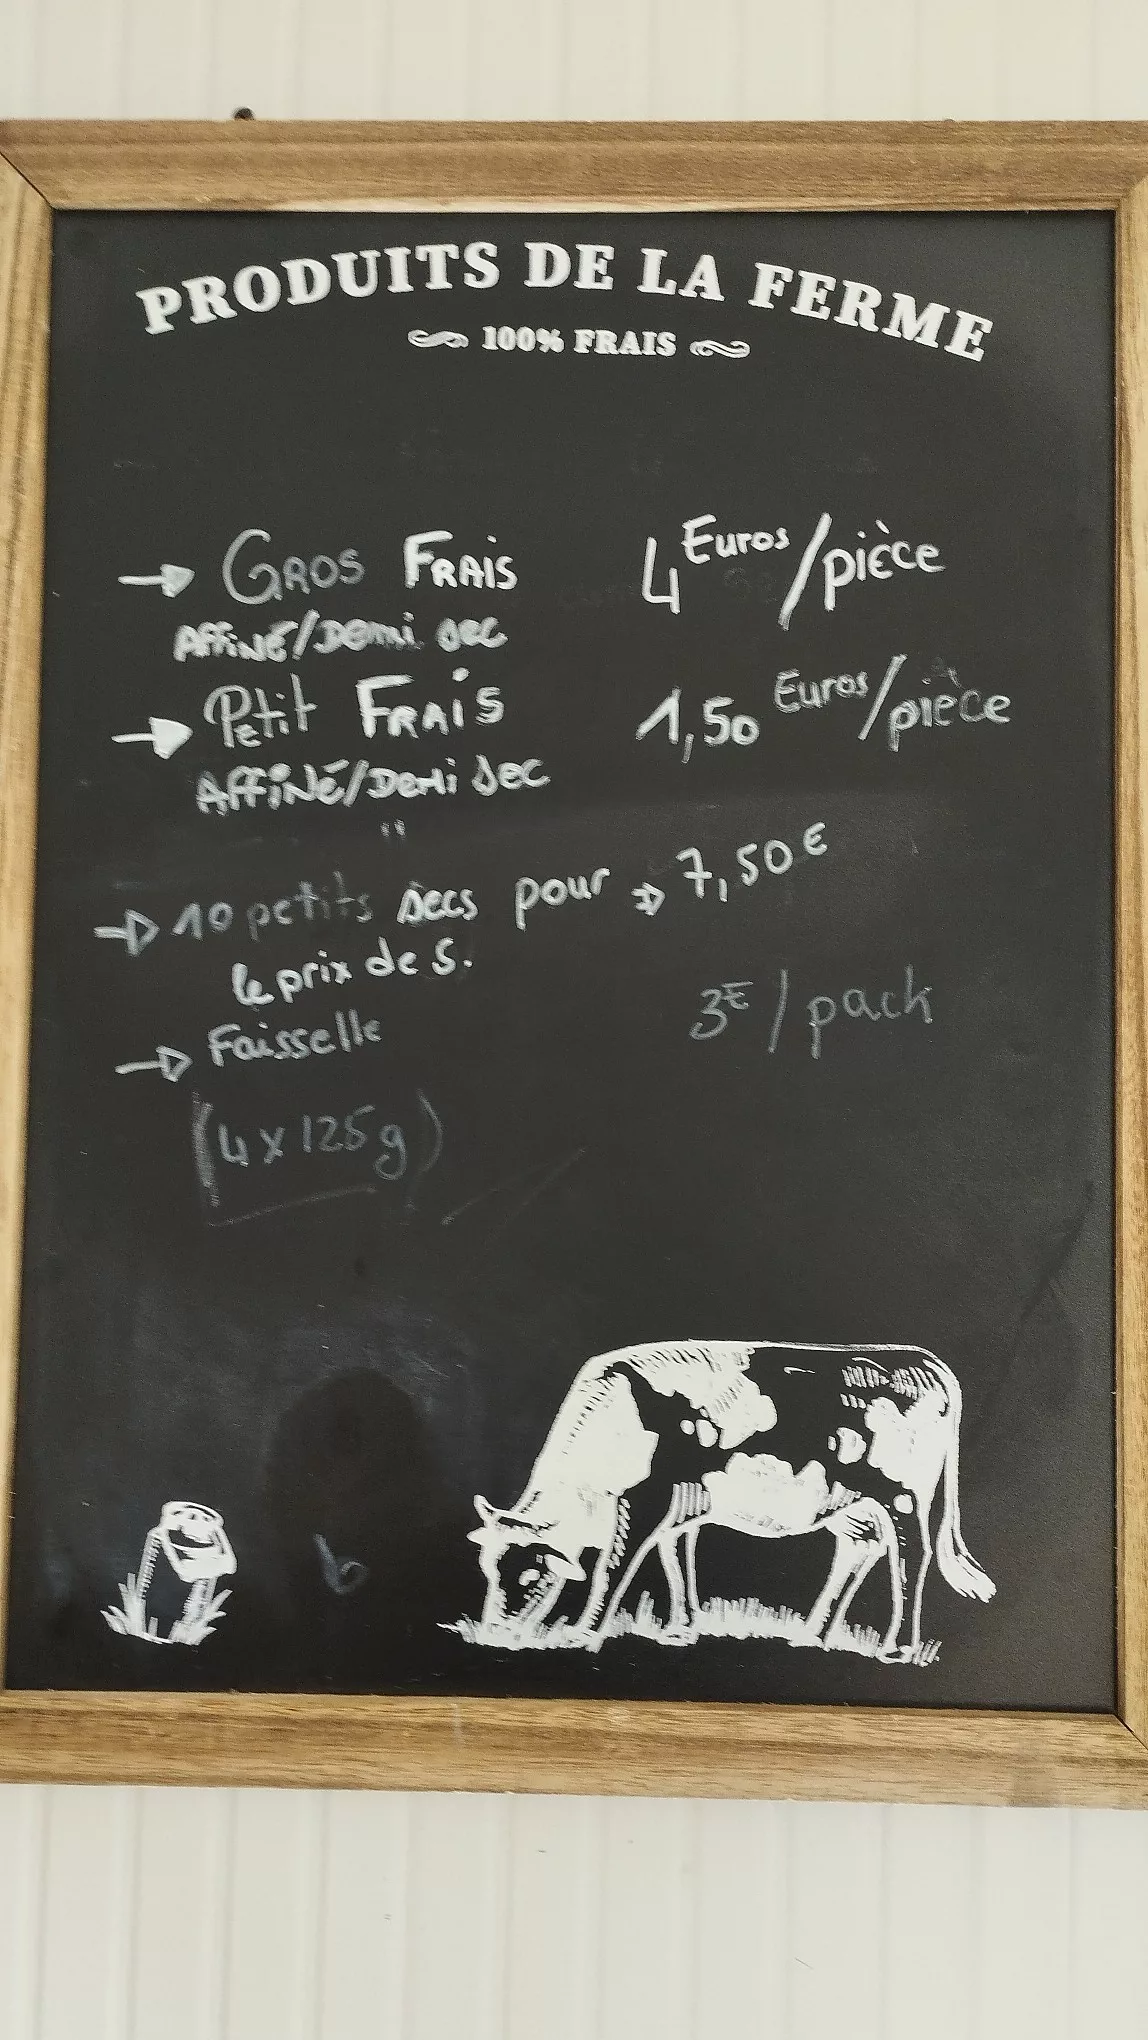 PRODUITS DE LA FERME
100% FRAIS
→ GROS FRAIS 4 Euros/pièce
AFFiNÉ/Demi sec
→ Petit FRAiS 1,50 Euros/pièce
AFFiNé/Demi Sec
"
→ 10 petits secs pour → 7,50€
le prix de 5.
→ Faisselle 3€/pack
(4 x 125g)